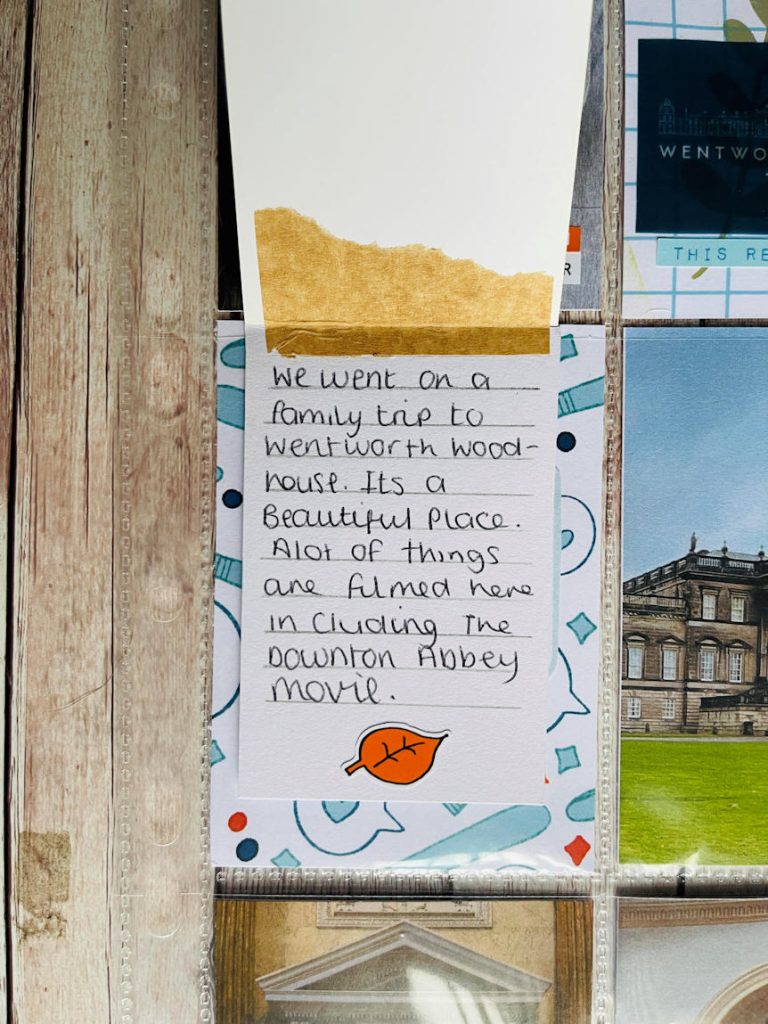 WENTWO
THIS RE
R
We went on a
family trip to
wentworth wood-
house. Its a
Beautiful Place.
Alot of things
are filmed here
in cluding The
Downton Abbey
movie.